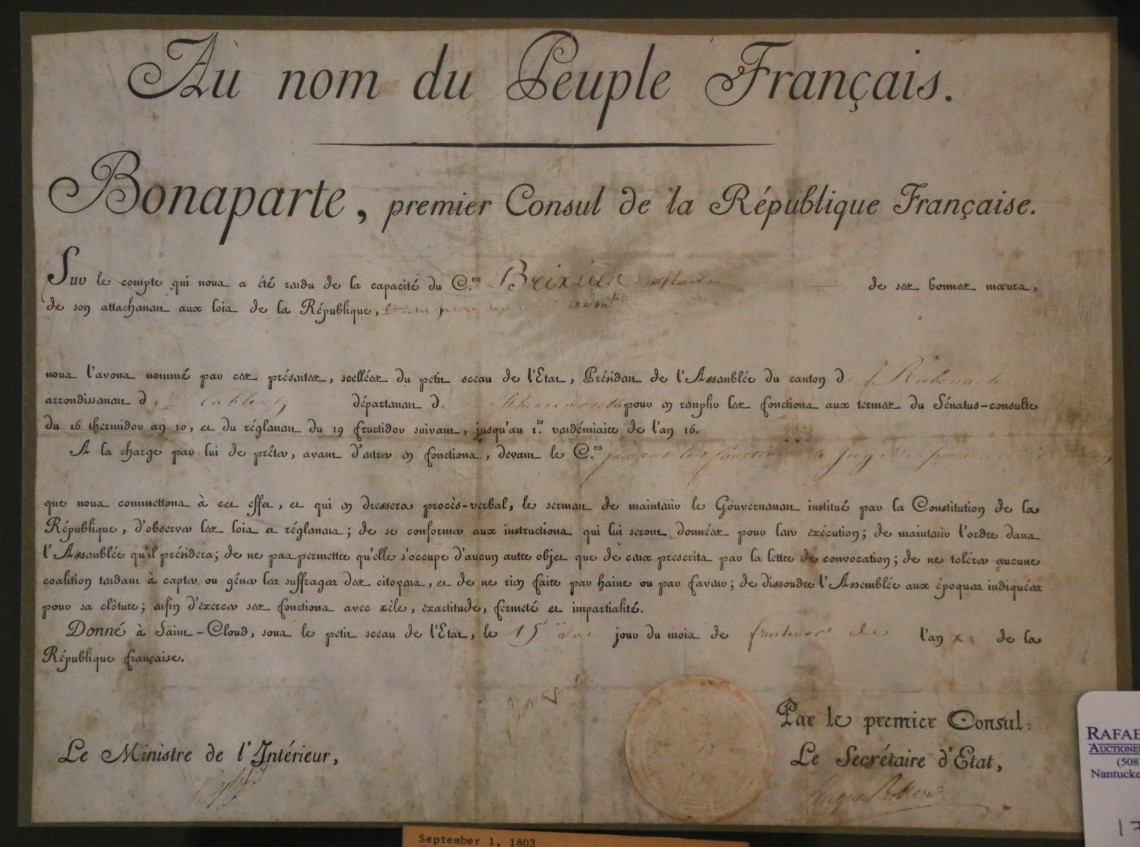 Au nom du Peuple Français.
Bonaparte, premier Consul de la République Française.
Sur le compte qui nous a été rendu de la capacité du C.en Brixius de ses bonnes mœurs,
de son attachement aux lois de la République,
nous l'avons nommé par ces présentes, scellées du petit sceau de l'Etat, Président de l'Assemblée du canton d
arrondissement d département d pour en remplir les fonctions aux termes du Sénatus-consulte
du 16 thermidor an 10, et du réglement du 19 fructidor suivant, jusqu'au 1.er vendémiaire de l'an 16.
A la charge par lui de prêter, avant d'entrer en fonctions, devant le C.en
que nous commettons à cet effet, et qui en dressera procès-verbal, le serment de maintenir le Gouvernement institué par la Constitution de la
République, d'observer les lois et réglemens; de se conformer aux instructions qui lui seront données pour leur exécution; de maintenir l'ordre dans
l'Assemblée qu'il présidera; de ne pas permettre qu'elle s'occupe d'aucun autre objet que de ceux prescrits par la lettre de convocation; de ne tolérer aucune
coalition tendant à capter ou gêner les suffrages des citoyens, et de ne rien faire par haine ou par faveur; de dissoudre l'Assemblée aux époques indiquées
pour sa clôture; enfin d'exercer ses fonctions avec zèle, exactitude, fermeté et impartialité.
Donné à Saint-Cloud, sous le petit sceau de l'Etat, le 15 jour du mois de fructidor l'an de la
République française.
Par le premier Consul:
Le Ministre de l'Intérieur,
Le Secrétaire d'Etat,
RAFAE
AUCTIONE
(508
Nantucke
September 1, 1803